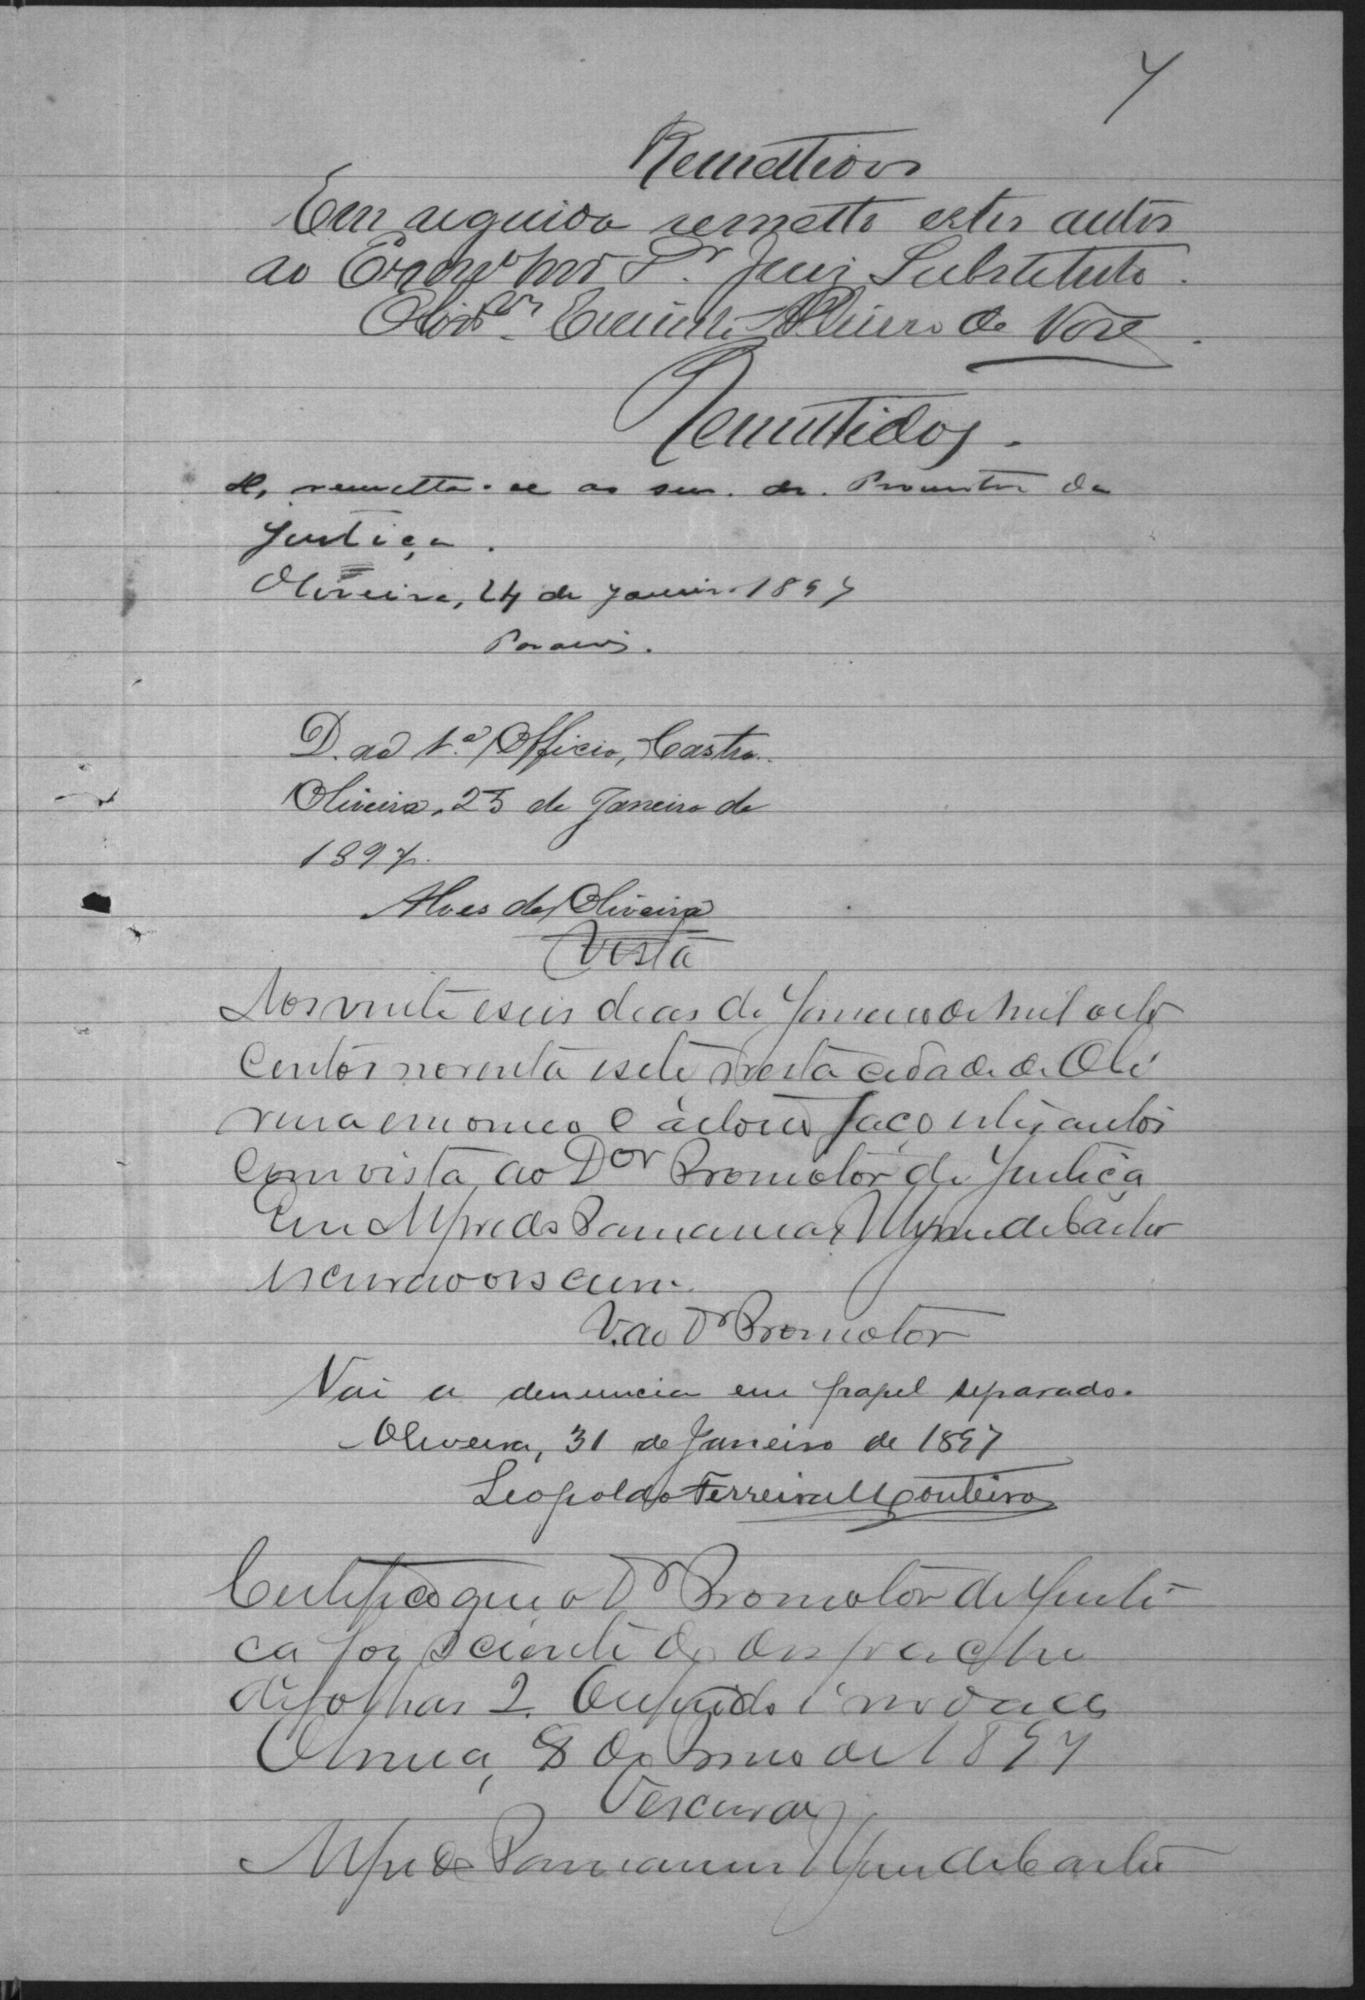 7
Remettidos
Em seguida remetto estes autos
ao Dr Juiz Substituto.
de
Remettidos.
A, remetta-se ao snr. dr. Promotor da
Justiça.
Oliveira, 24 de Janeiro 1897
D. ao 1.º Officio, Castro.
Oliveira, 25 de Janeiro de
1897.
Alves de Oliveira
Vista
Aos vinte e seis dias de Janeiro de mil oito
centos noventa e sete nesta cidade de Oli
veira em o meu cartorio faço estes autos
com vista ao Dor Promotor de Justiça
Eu Alfredo de Castro
escrivão o escrevi.
V. ao Dr Promotor
Vai a denuncia em papel separado.
Oliveira, 31 de Janeiro de 1897
Leopoldo Ferreira Monteiro
Certifico que o Dr Promotor de Justi
ça foi sciente do despacho
de folhas 2.
8 de de 1897
O escrivão
Alfredo de Castro